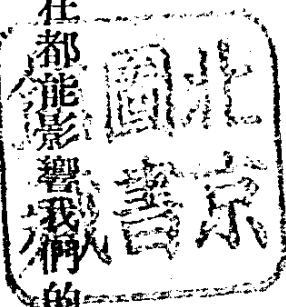 在都能影響我們的
北京
圖書
館藏